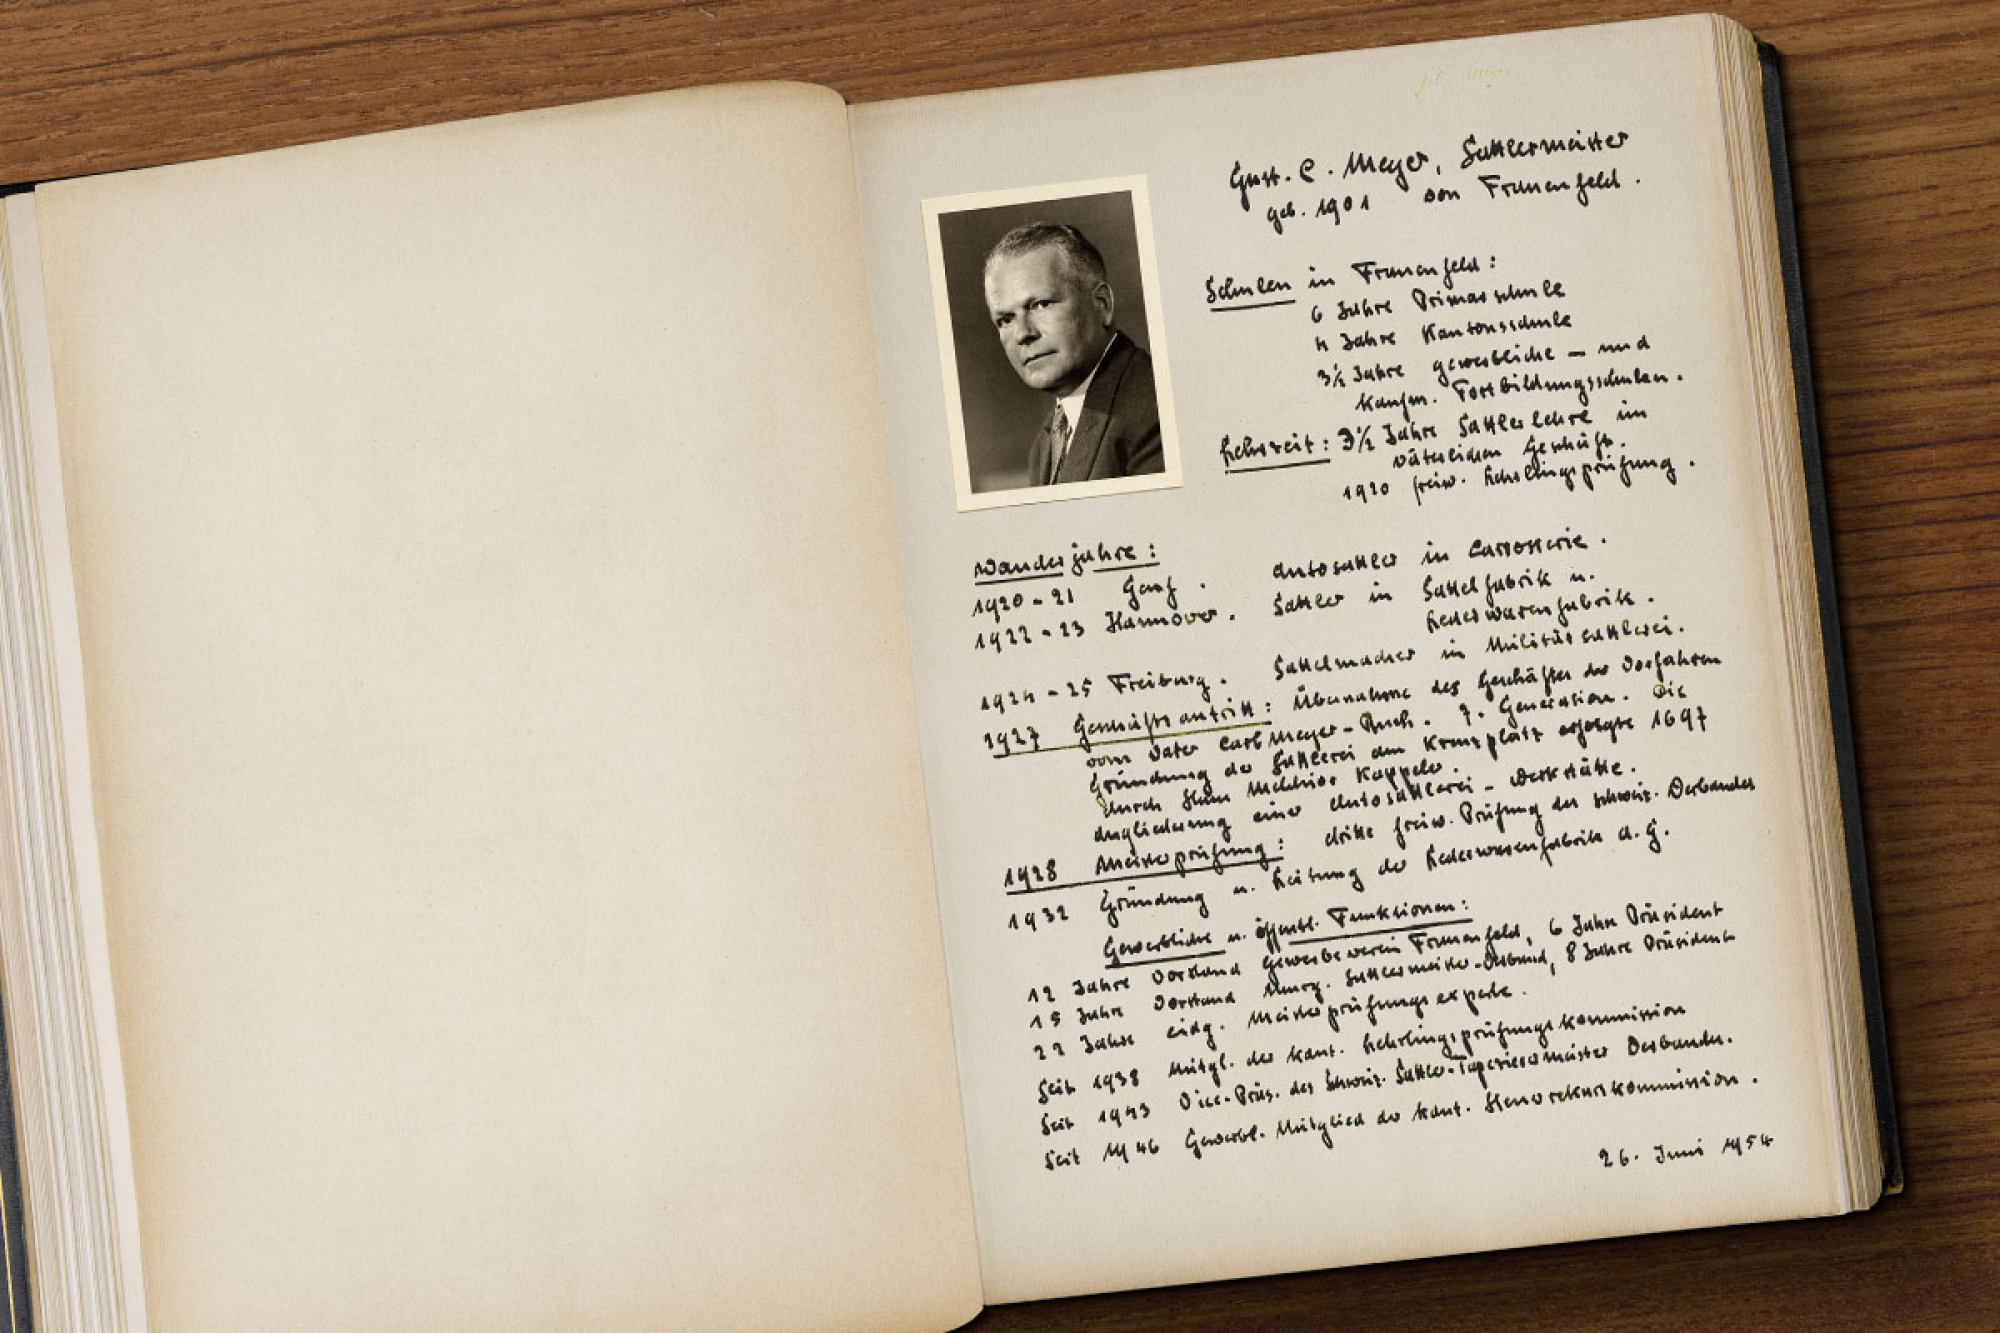 Gust. C. Meyer, Sattlermeister
geb. 1901 von Frauenfeld.
Schulen in Frauenfeld:
6 Jahre Primarschule
4 Jahre Kantonsschule
3½ Jahre gewerbliche – und
kaufm. Fortbildungsschulen.
Lehrzeit: 3½ Jahre Sattlerlehre im
väterlichen Geschäft.
1920 freiw. Lehrlingsprüfung.
Wanderjahre:
1920 - 21 Genf. Autosattler in Carrosserie.
1922 - 23 Hannover. Sattler in Sattelfabrik u.
Lederwarenfabrik.
1924 - 25 Freiburg. Sattelmacher in Militärsattlerei.
1927 Geschäftsantritt: Übernahme des Geschäftes der Vorfahren
vom Vater Carl Meyer - Ruch. 7. Generation. Die
Gründung der Sattlerei am Kreuzplatz erfolgte 1697
durch Hans Melchior Kappeler.
Angliederung einer Autosattlerei - Werkstätte.
1928 Meisterprüfung: dritte freiw. Prüfung des schweiz. Verbandes
1932 Gründung u. Leitung der Lederwarenfabrik A. G.
Gewerbliche u. öffentl. Funktionen:
12 Jahre Vorstand Gewerbeverein Frauenfeld, 6 Jahre Präsident
15 Jahre Vorstand thurg. Sattlermeister-Verband, 8 Jahre Präsident
22 Jahre eidg. Meisterprüfungsexperte.
Seit 1938 Mitgl. der kant. Lehrlingsprüfungskommission
Seit 1943 Vice-Präs. des Schweiz. Sattler-Tapezierermeister Verbandes.
Seit 1946 Gewerbl. Mitglied der kant. Steuerrekurskommission.
26. Juni 1954